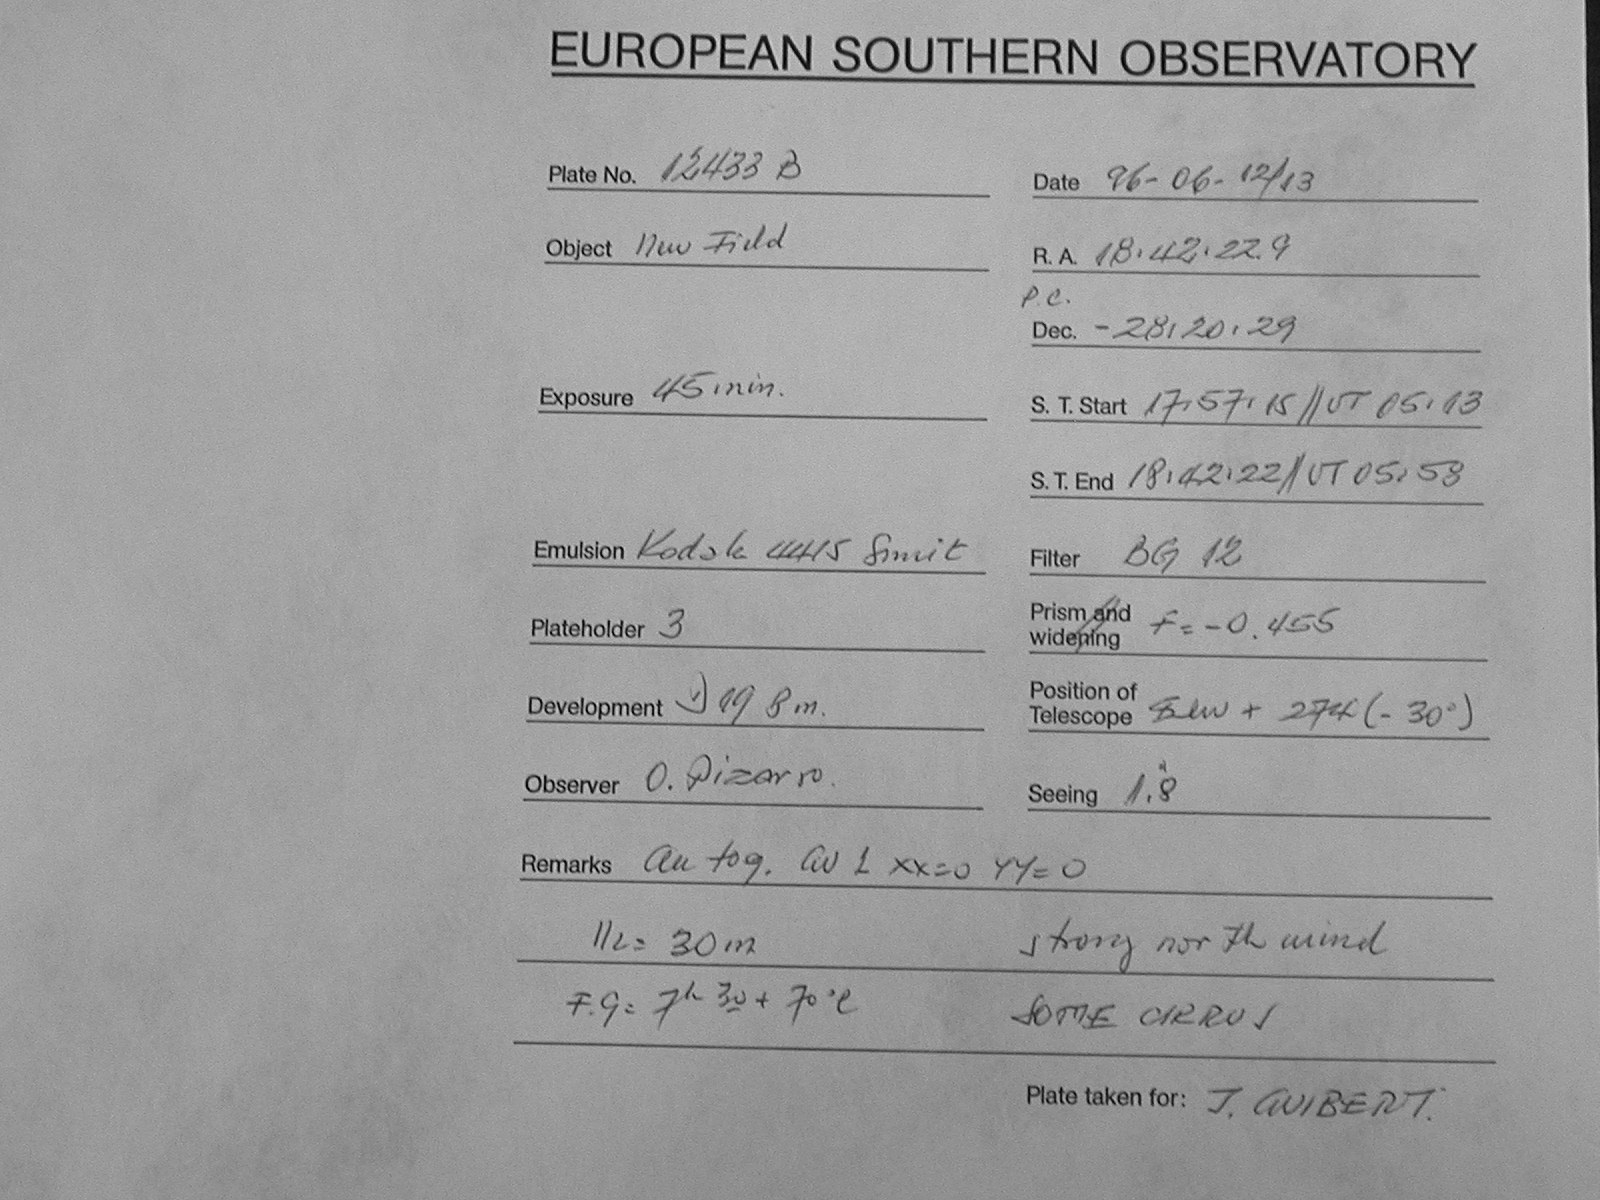 EUROPEAN SOUTHERN OBSERVATORY
Plate No. 12433 B
Date 96-06-12/13
Object New Field
R. A. 18.42.22.9
P.C.
Dec. -28.20.29
Exposure 45 min.
S. T. Start 17.57.15 // UT 05.13
S. T. End 18.42.22 // UT 05.58
Emulsion Kodak 4415
Filter BG 12
Plateholder 3
Prism and widening F=-0.455
Development D 19 8 m.
Position of Telescope + 274 (-30°)
Observer O. Pizarro.
Seeing 1.8"
Remarks Autog. XX=0 YY=0
N2= 30m
strong north wind
F.G= 7h 30 + 70°C
SOME CIRRUS
Plate taken for: J. GUIBERT.